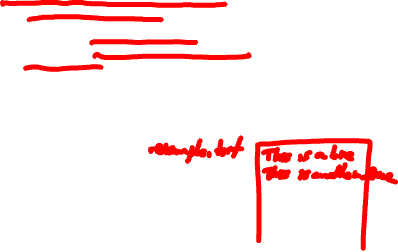 example.txt
This is a line
This is another line